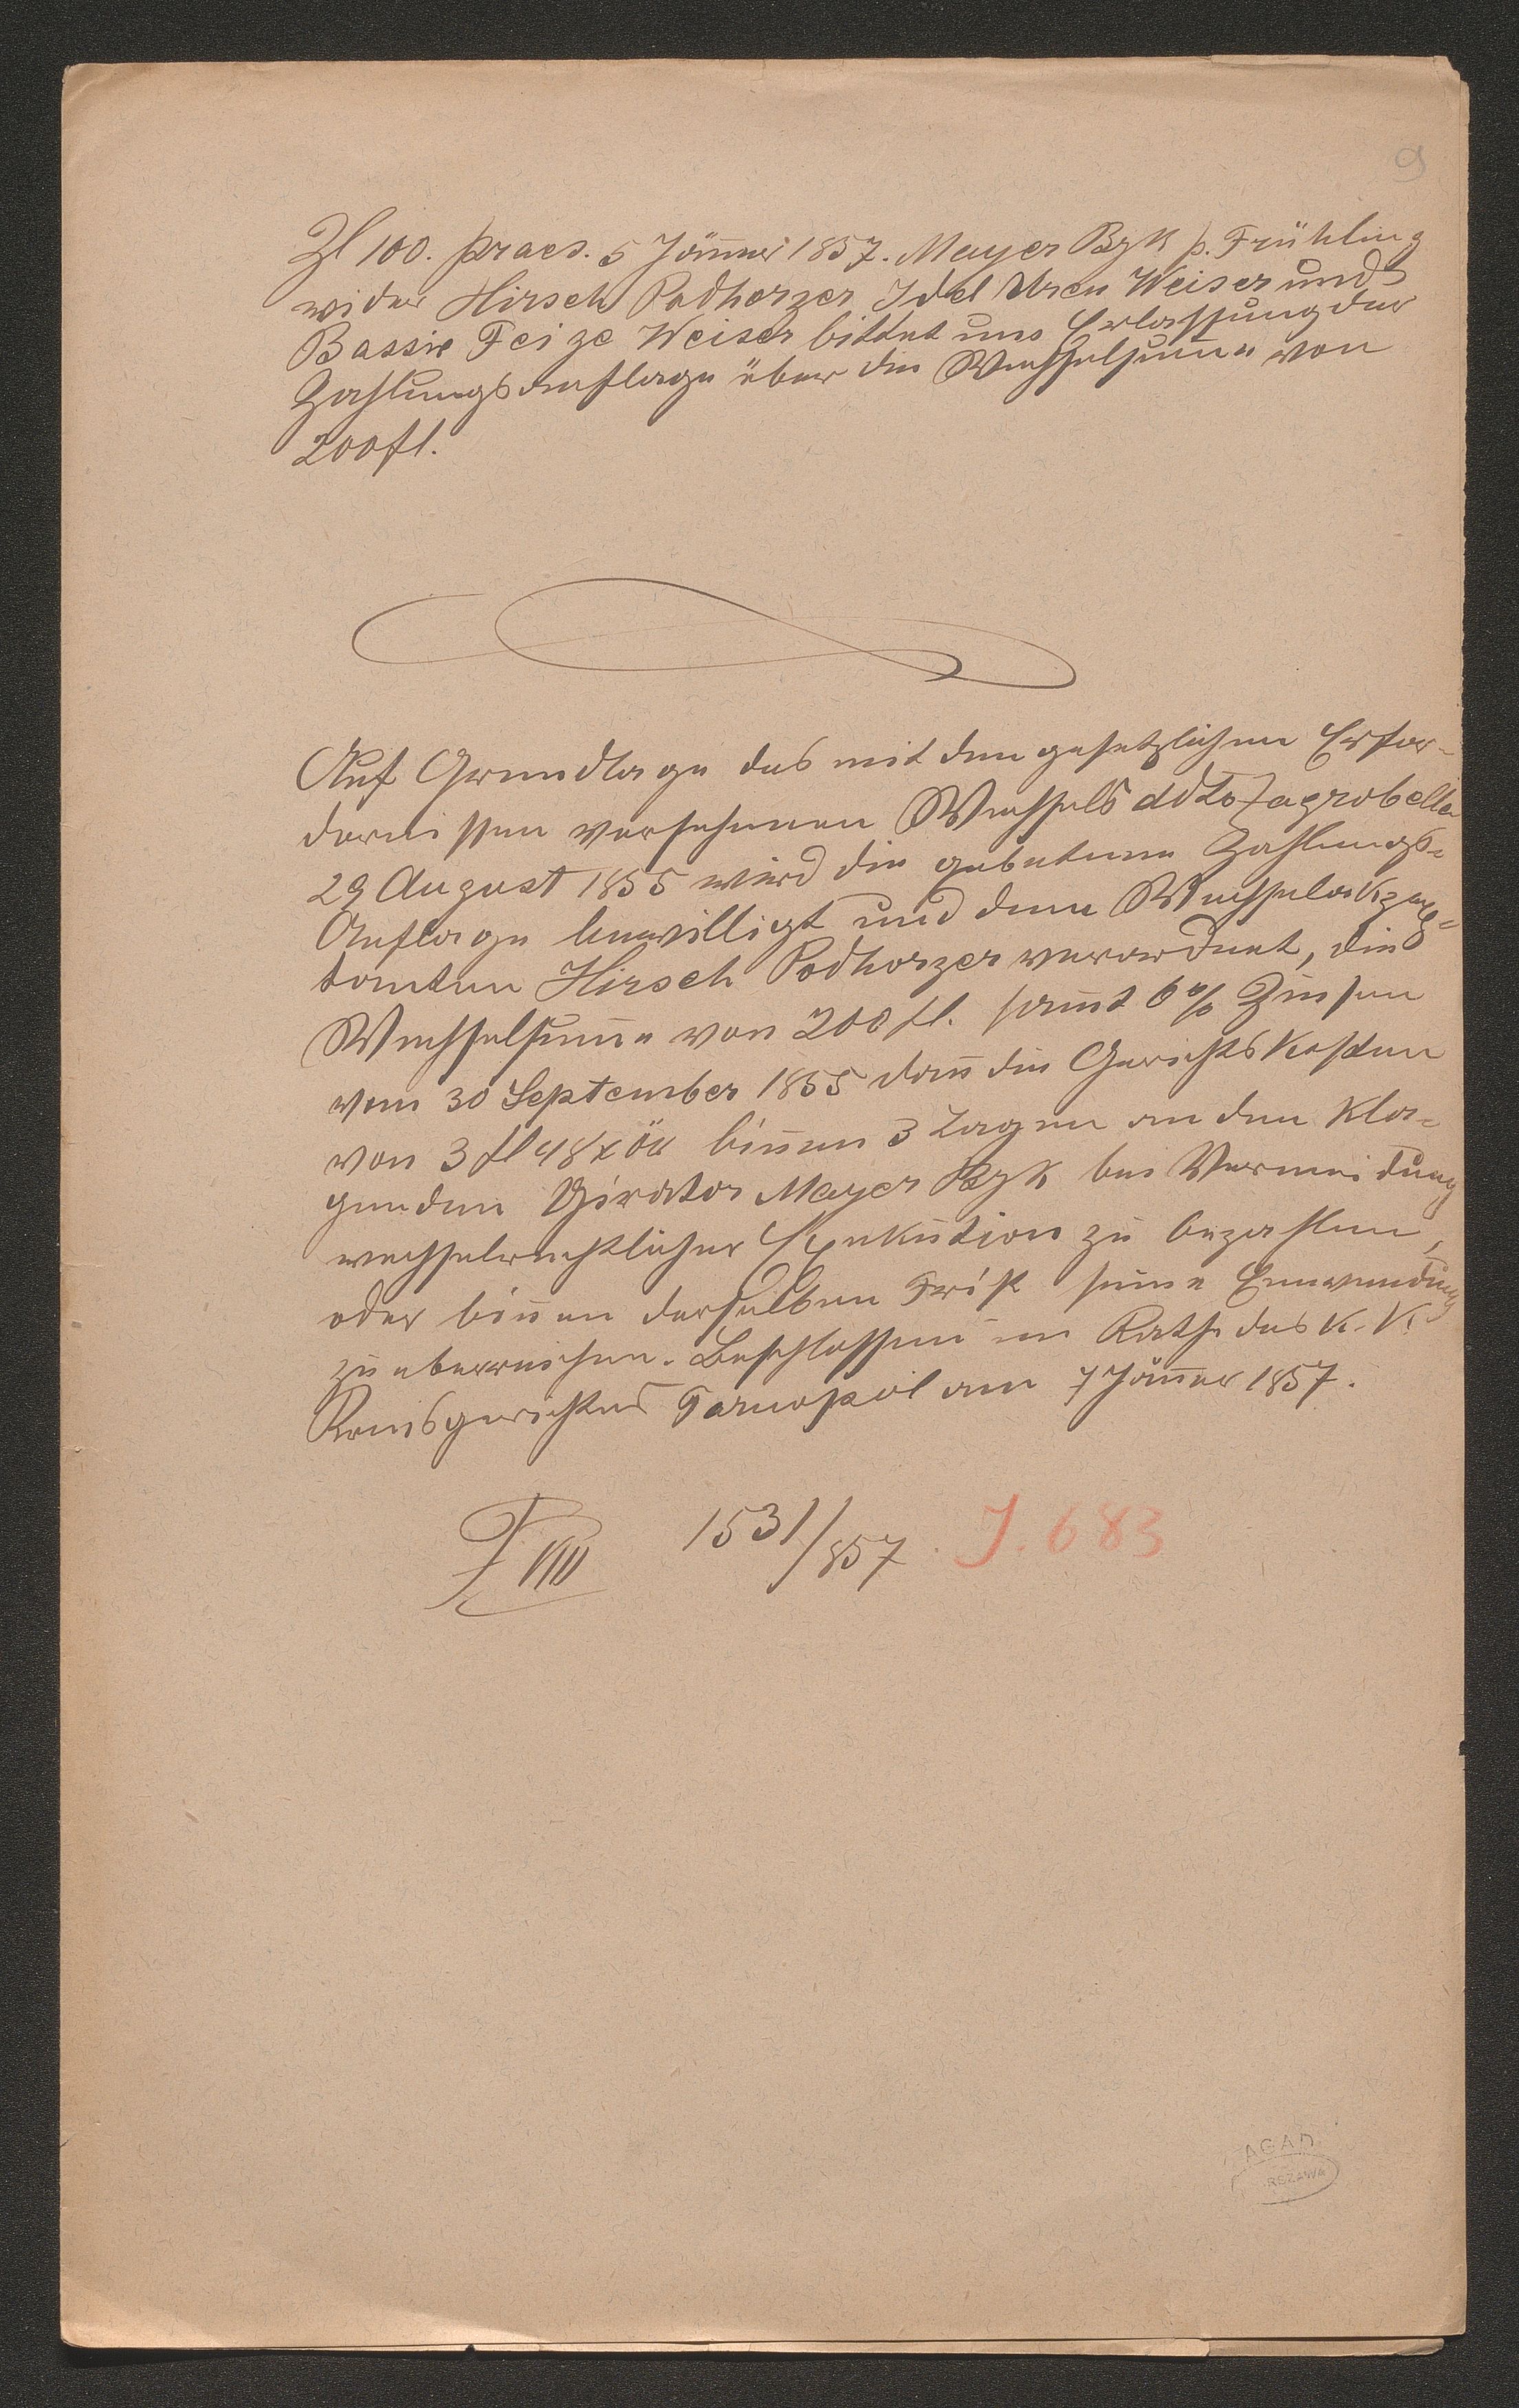 9
Zl 100. praes. 5 Jänner 1857. Mayer Bzk p. Frühling
wider Hirsch Podhorzer Idel Uren Weiser und
Bassie Feige Weiser bittet um Erlassung der
Zahlungsauflage über die Wechselsum̄e von
200 fl.
Auf Grundlage des mit den gesetzlichen Erfor-
dernissen versehenen Wechsels ddto Zagrobella
29 August 1855 wird die gebetene Zahlungs-
Auflage bewilligt und dem Wechselakzep-
tanten Hirsch Podhorzer verordnet, die
Wechselsum̄e von 200 fl. sam̄t 6% Zinsen
vom 30 September 1855 dan̄ die Gerichtskosten
von 3 fl 48 x ök bin̄en 3 Tagen an den Kla-
genden Girator Mayer Bzk bei Vermeidung
wechselrechtlicher Exekution zu bezahlen,
oder bin̄en derselben Frist seine Einwendung
zu überreichen. Beschlossen im Rathe des k. k.
Kreisgerichtes Tarnopol am 7 Jän̄er 1857.
VIII 1531/857. J. 683
AGAD
RSZAWA